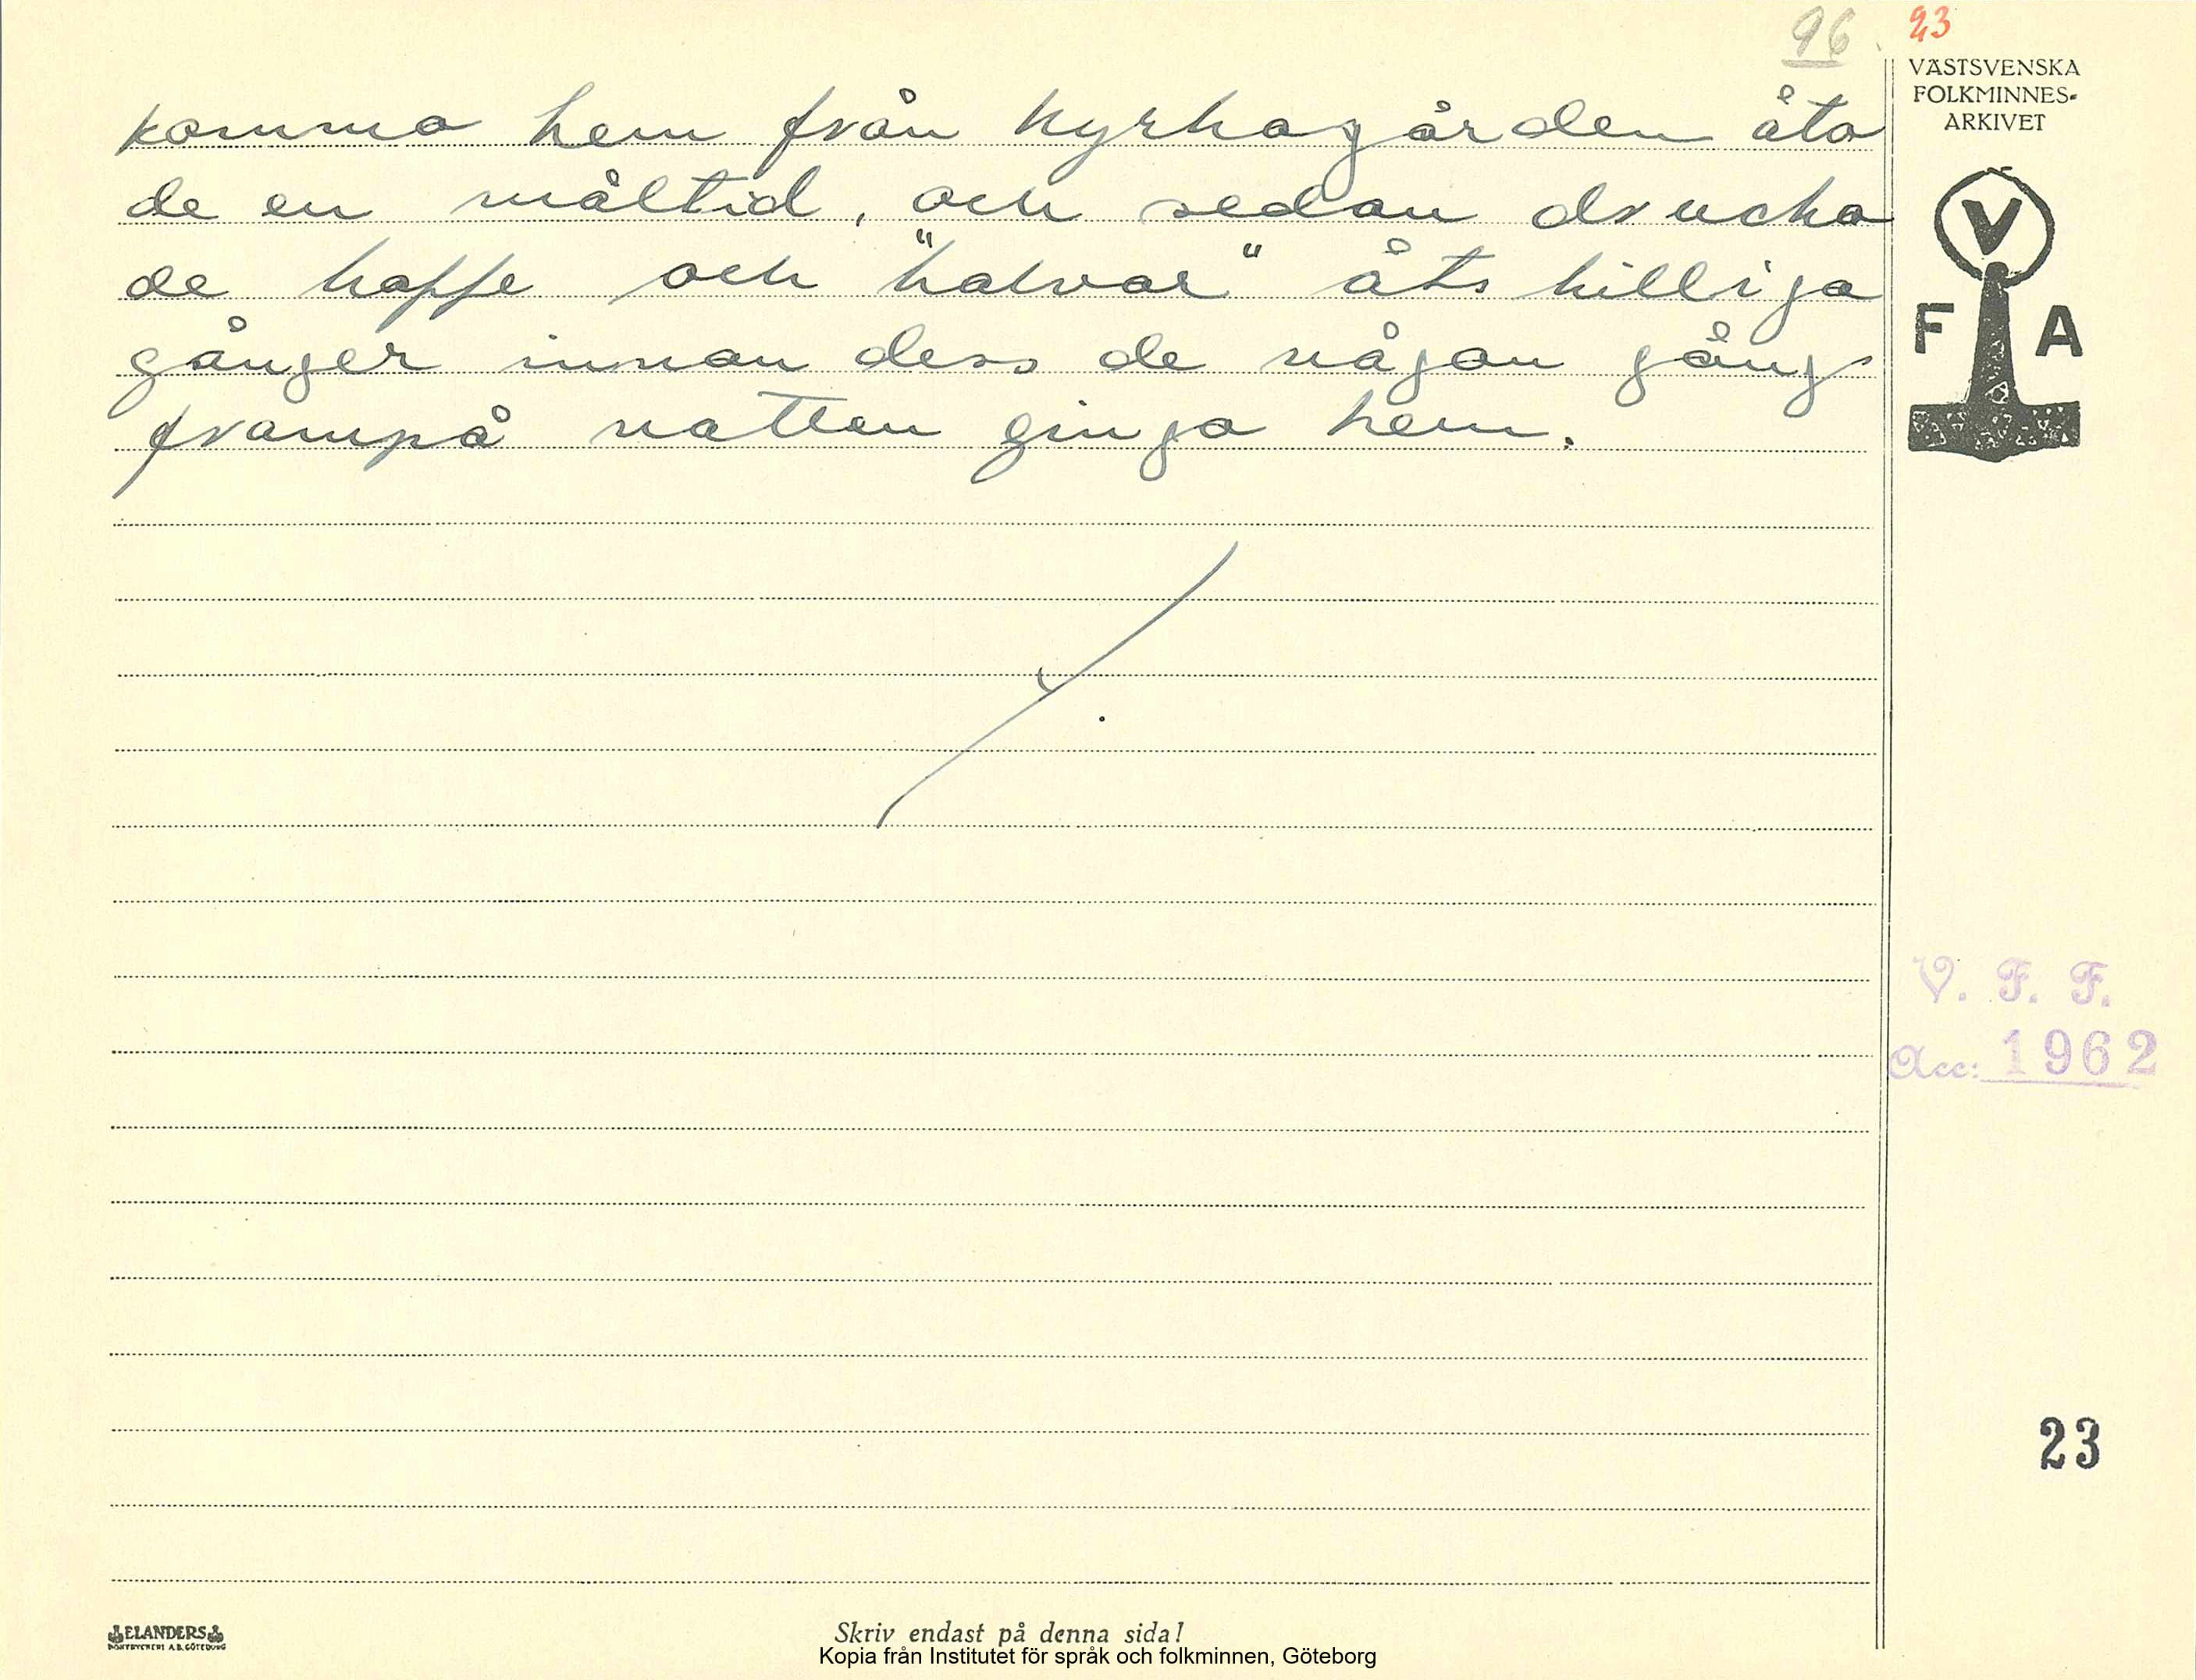 96 23
VÄSTSVENSKA
FOLKMINNES-
ARKIVET
komma hem från kyrkogården åto
de en måltid, och sedan drucko
de kaffe och "halvar" åts
gånger innan dess de någon gång
frampå natten gingo hem.
V
F A
V. F. F.
Acc: 1962
23
ELANDERS
BOKTRYCKERI A.B. GÖTEBORG
Skriv endast på denna sida!
Kopia från Institutet för språk och folkminnen, Göteborg